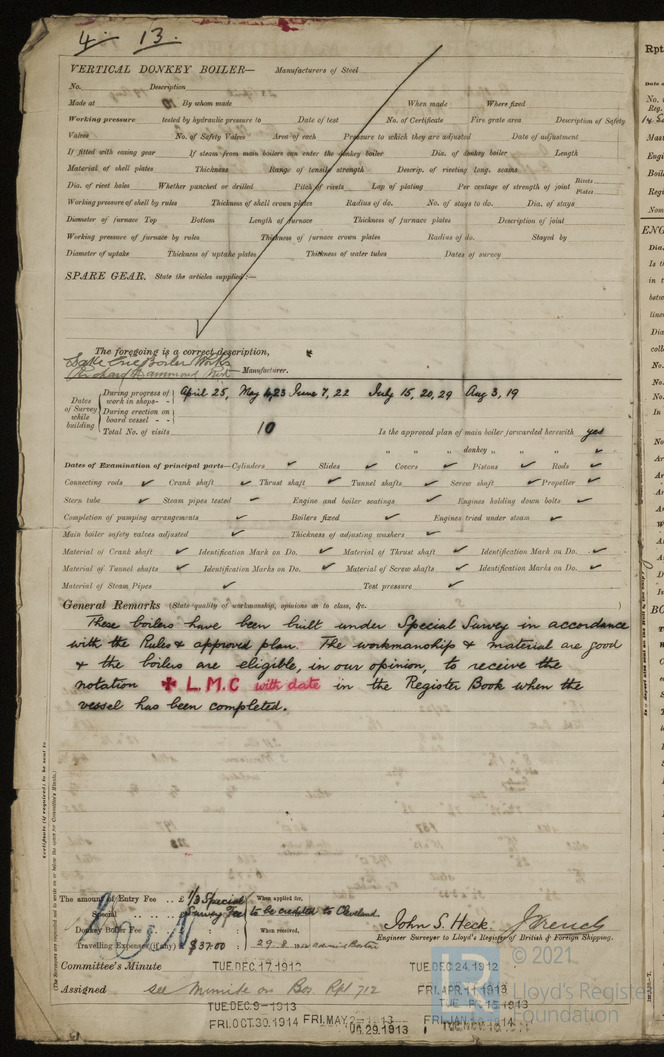 4. 13.
VERTICAL DONKEY BOILER— Manufacturers of Steel
No. Description
Made at By whom made When made Where fixed
Working pressure tested by hydraulic pressure to Date of test No. of Certificate Fire grate area Description of Safety
Valves No. of Safety Valves Area of each Pressure to which they are adjusted Date of adjustment
If fitted with easing gear If steam from main boilers can enter the donkey boiler Dia. of donkey boiler Length
Material of shell plates Thickness Range of tensile strength Descrip. of riveting long. seams
Dia. of rivet holes Whether punched or drilled Pitch of rivets Lap of plating Per centage of strength of joint Rivets Plates
Working pressure of shell by rules Thickness of shell crown plates Radius of do. No. of stays to do. Dia. of stays
Diameter of furnace Top Bottom Length of furnace Thickness of furnace plates Description of joint
Working pressure of furnace by rules Thickness of furnace crown plates Radius of do. Stayed by
Diameter of uptake Thickness of uptake plates Thickness of water tubes Dates of survey
SPARE GEAR. State the articles supplied:—
The foregoing is a correct description,
Lake Erie Boiler Works
Richard Hammond Manufacturer.
Dates of Survey while building
During progress of work in shops - - April 25, May 4, 23 June 7, 22 July 15, 20, 29 Aug 3, 19
During erection on board vessel - -
Total No. of visits 10 Is the approved plan of main boiler forwarded herewith yes
" " " donkey " " " ✓
Dates of Examination of principal parts—Cylinders ✓ Slides ✓ Covers ✓ Pistons ✓ Rods ✓
Connecting rods ✓ Crank shaft ✓ Thrust shaft ✓ Tunnel shafts ✓ Screw shaft ✓ Propeller ✓
Stern tube ✓ Steam pipes tested ✓ Engine and boiler seatings ✓ Engines holding down bolts ✓
Completion of pumping arrangements ✓ Boilers fixed ✓ Engines tried under steam ✓
Main boiler safety valves adjusted ✓ Thickness of adjusting washers ✓
Material of Crank shaft ✓ Identification Mark on Do. ✓ Material of Thrust shaft ✓ Identification Mark on Do. ✓
Material of Tunnel shafts ✓ Identification Marks on Do. ✓ Material of Screw shafts ✓ Identification Marks on Do. ✓
Material of Steam Pipes ✓ Test pressure ✓
General Remarks (State quality of workmanship, opinions as to class, &c. )
These boilers have been built under Special Survey in accordance
with the Rules & approved plan. The workmanship & material are good
& the boilers are eligible, in our opinion, to receive the
notation ✠ L.M.C with date in the Register Book when the
vessel has been completed.
The amount of Entry Fee .. £ 1/3 Special When applied for,
Special .. Survey Fee to be credited to Cleveland
Donkey Boiler Fee When received,
Travelling Expenses (if any) $37.00 29.8.
John S. Heck J French
Engineer Surveyor to Lloyd's Register of British & Foreign Shipping.
Committee's Minute TUE.DEC.17.1912 TUE.DEC.24.1912
Assigned see Minute on Bos Rpt 712 FRI.APR.11.1913
TUE.DEC.9-1913
FRI.OCT.30.1914
© 2021
Lloyd's Register
Foundation